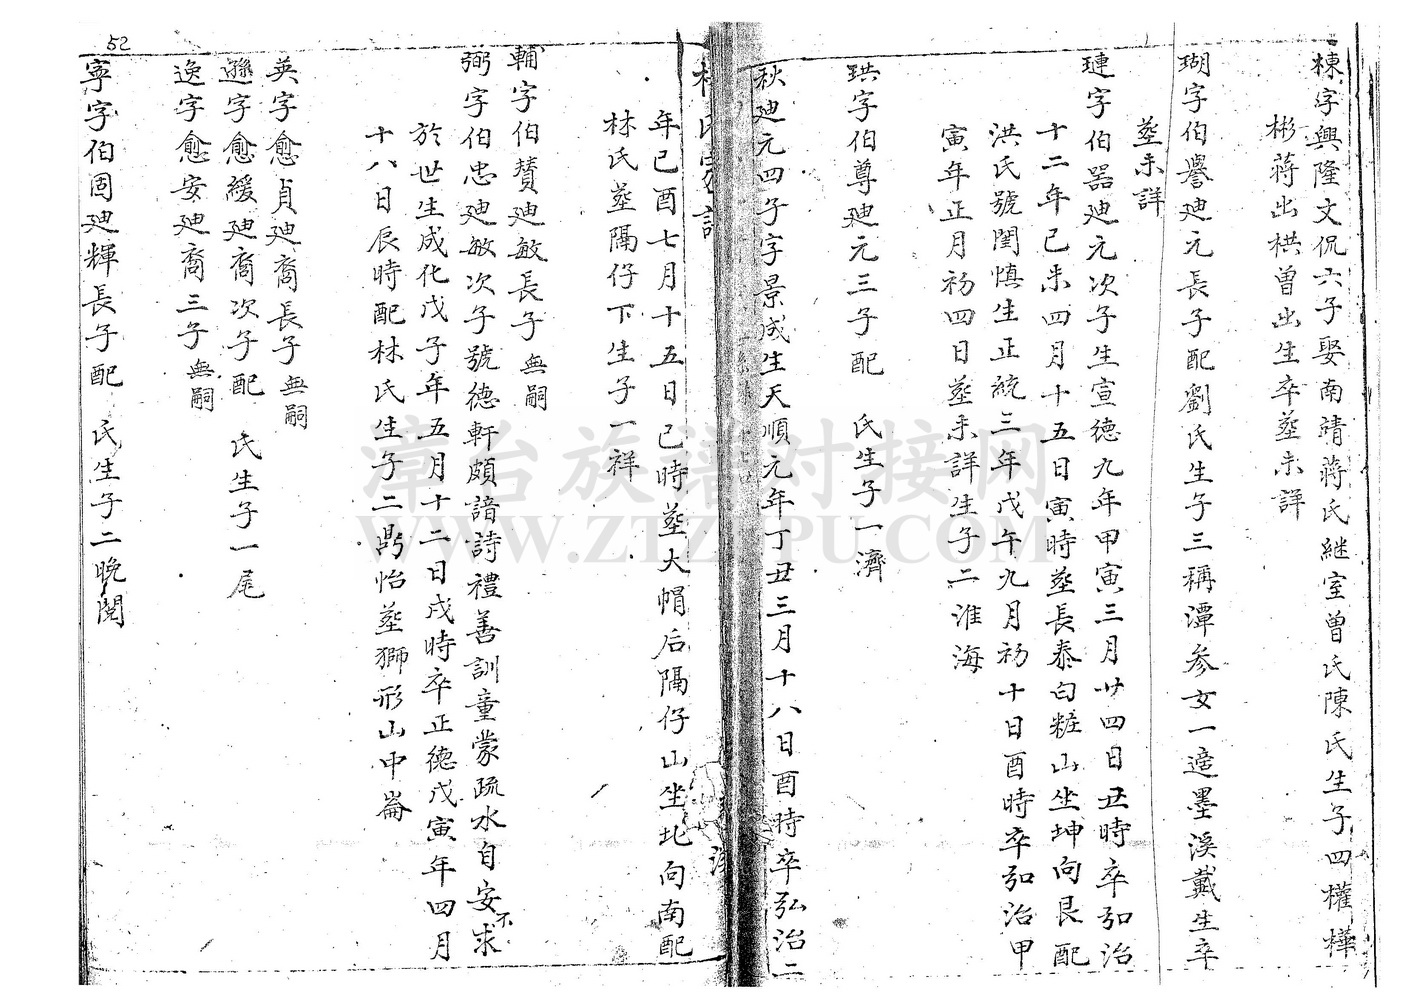 棟字興隆文侃六子娶南靖蔣氏継室曾氏陳氏生子四權樺
彬蔣出栱曾出生卒塟未詳
瑚字伯譽廸元長子配劉氏生子三稱潭参女一適墨溪戴生卒
塟未詳
璉字伯器廸元次子生宣德九年甲寅三月廿四日丑時卒弘治
十二年己未四月十五日寅時塟長泰白粧山坐坤向艮配
洪氏號閨慎生正統三年戊午九月初十日酉時卒弘治甲
寅年正月初四日塟未詳生子二淮海
珙字伯尊廸元三子配 氏生子一濟
秋廸元四子字景成生天順元年丁丑三月十八日酉時卒弘治二
林氏家譜
年己酉七月十五日已時塟大帽后隔仔山坐北向南配
林氏塟隔仔下生子一祥
輔字伯贊廸敏長子無嗣
弼字伯忠廸敏次子號德軒頗諳詩禮善訓童蒙疏水自安不求
於世生成化戊子年五月十二日戌時卒正德戊寅年四月
十八日辰時配林氏生子二鼎怡塟獅形山中崙
英字愈貞廸裔長子無嗣
遜字愈緩廸裔次子配 氏生子一尾
逸字愈安廸裔三子無嗣
寧字伯固廸輝長子配 氏生子二晩閲
52
漳台族谱对接网
WWW.ZTZUPU.COM